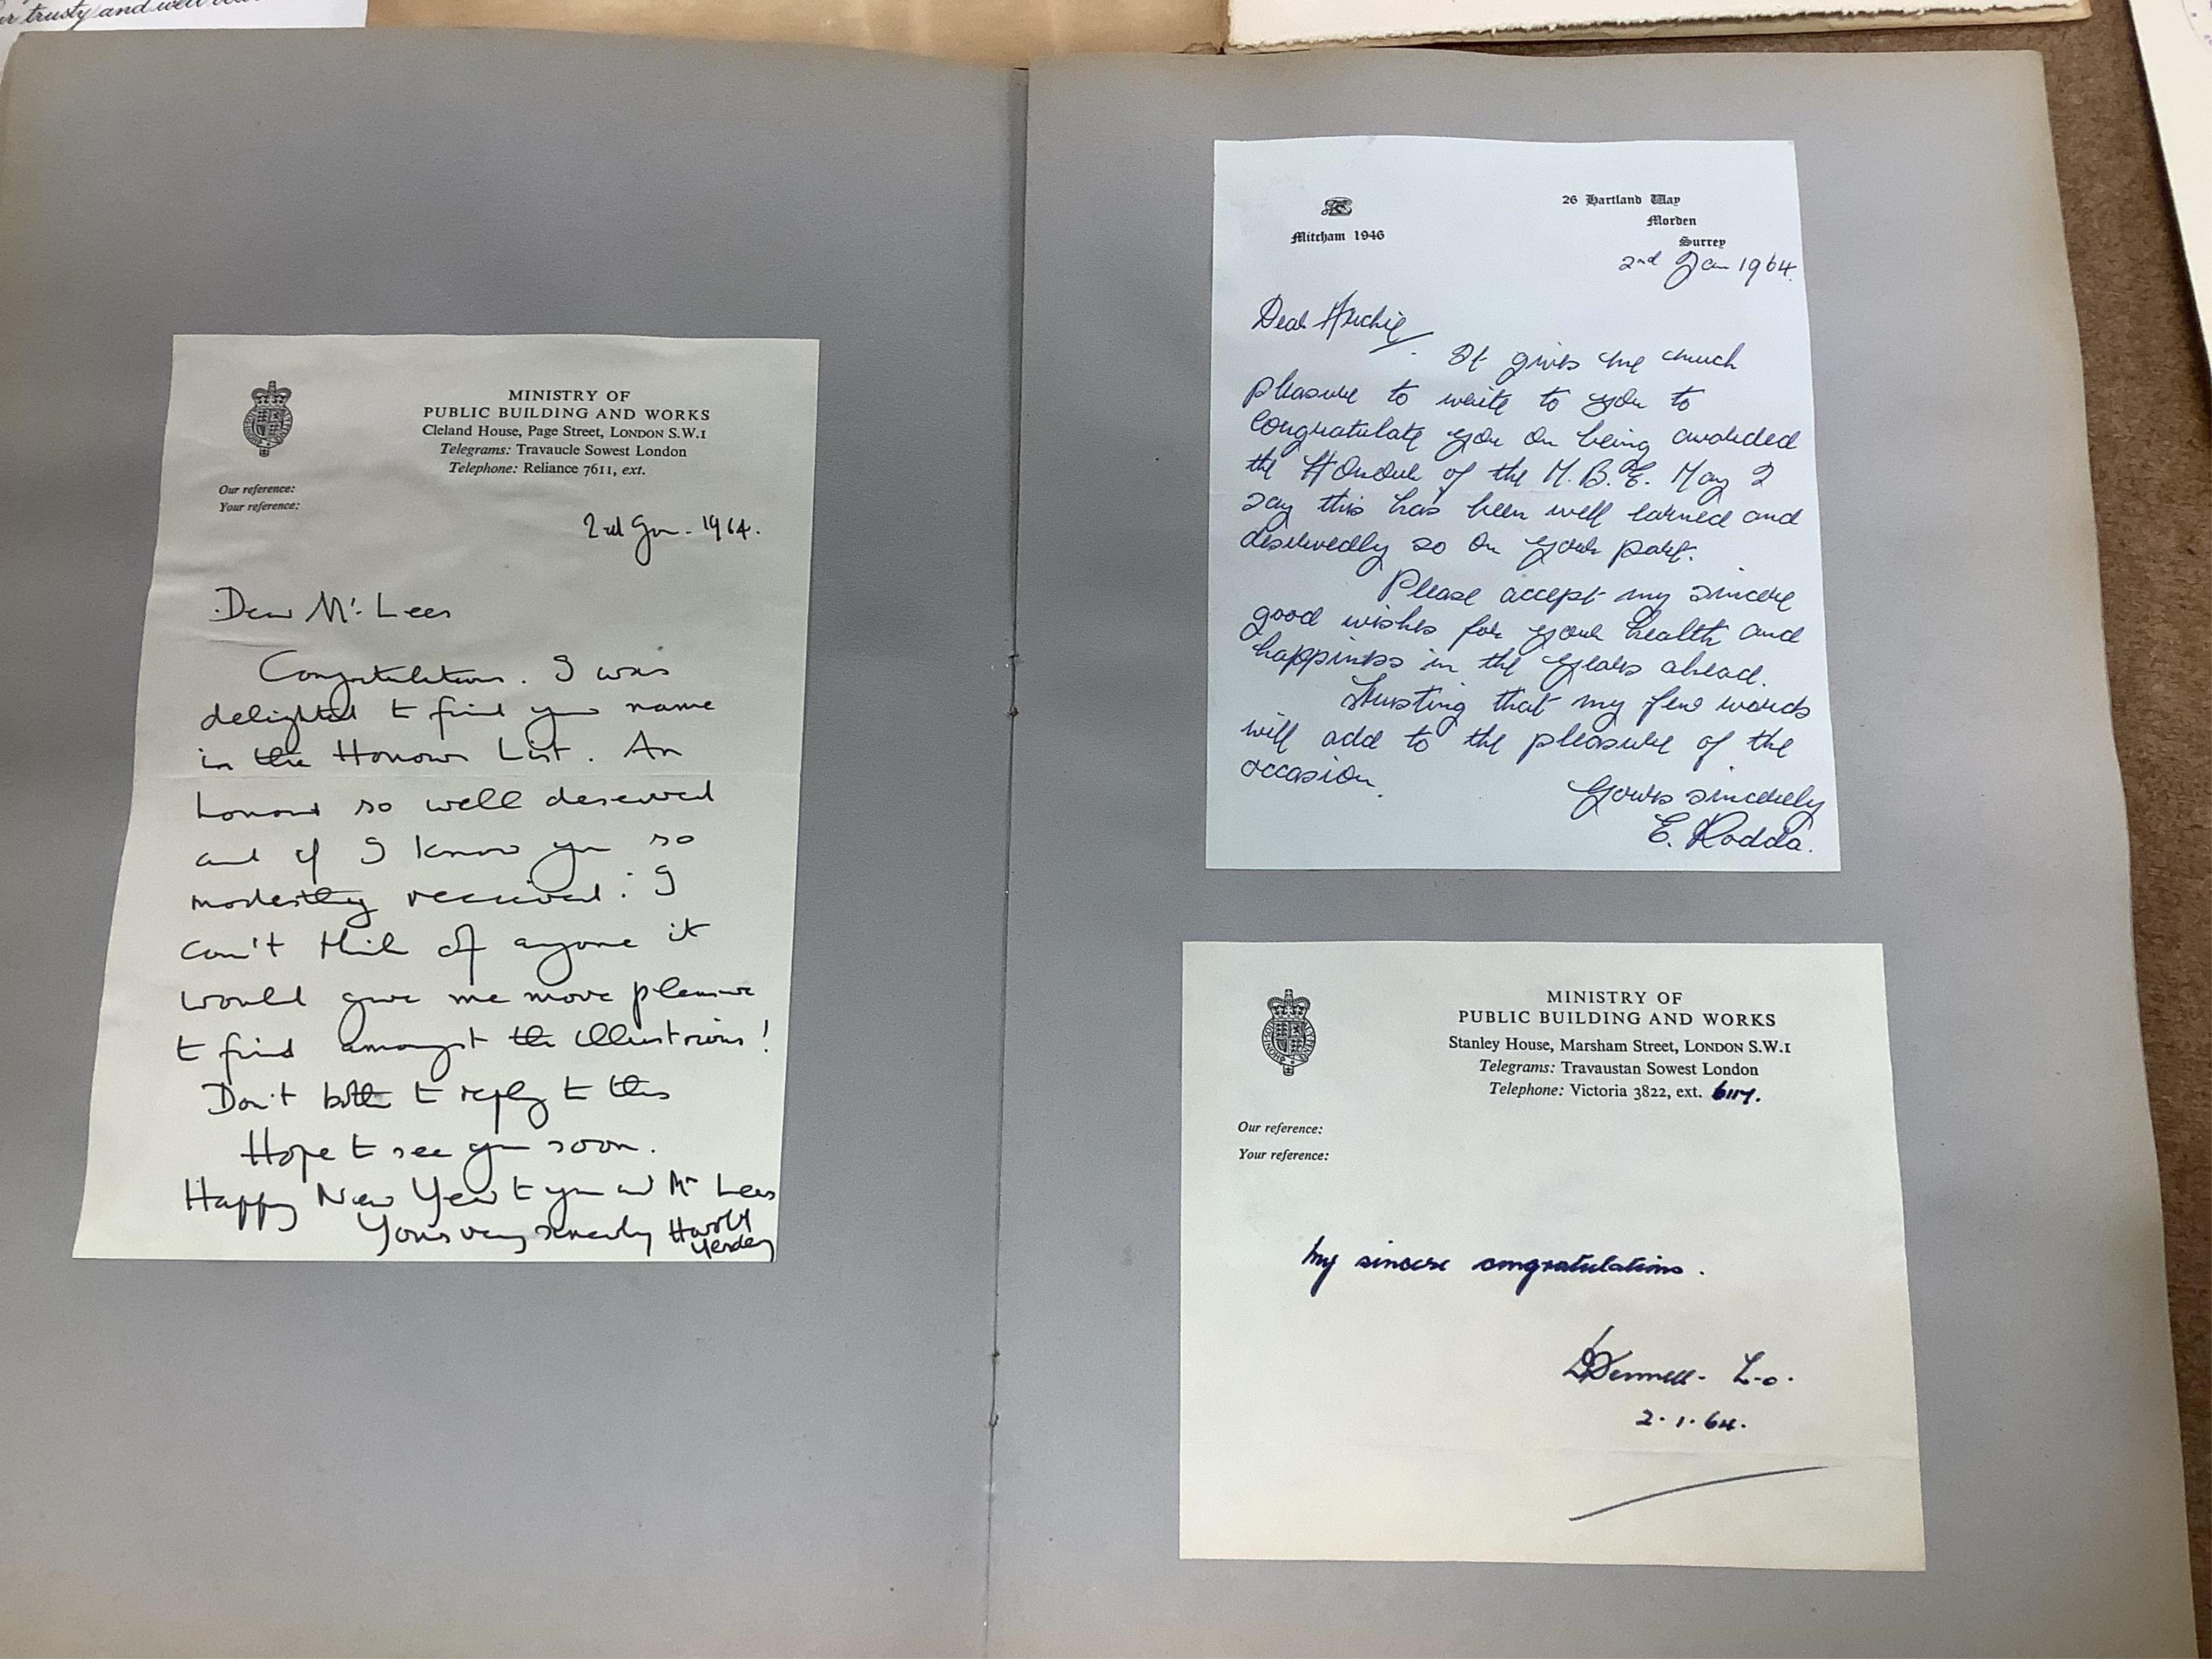 trusty and well
MINISTRY OF
PUBLIC BUILDING AND WORKS
Cleland House, Page Street, LONDON S.W.1
Telegrams: Travaucle Sowest London
Telephone: Reliance 7611, ext.
Our reference:
Your reference:
2nd Jan. 1964.
Dear Mr. Lees
Congratulations. I was
delighted to find your name
in the Honours List. An
honour so well deserved
and if I know you so
modestly received. I
can't think of anyone it
would give me more pleasure
to find amongst the illustrious!
Don't bother to reply to this
Hope to see you soon.
Happy New Year to you and Mrs Lees
Yours very sincerely Harold
26 Hartland Way
Morden
Surrey
Mitcham 1946
2nd Jan 1964.
Dear Archie,
It gives me much
pleasure to write to you to
congratulate you on being awarded
the Honour of the M.B.E. May I
say this has been well earned and
deservedly so on your part.
Please accept my sincere
good wishes for your health and
happiness in the years ahead.
Trusting that my few words
will add to the pleasure of the
occasion.
Yours sincerely
E. Rodda.
MINISTRY OF
PUBLIC BUILDING AND WORKS
Stanley House, Marsham Street, LONDON S.W.1
Telegrams: Travaustan Sowest London
Telephone: Victoria 3822, ext.
Our reference:
Your reference:
My sincere congratulations.
2.1.64.